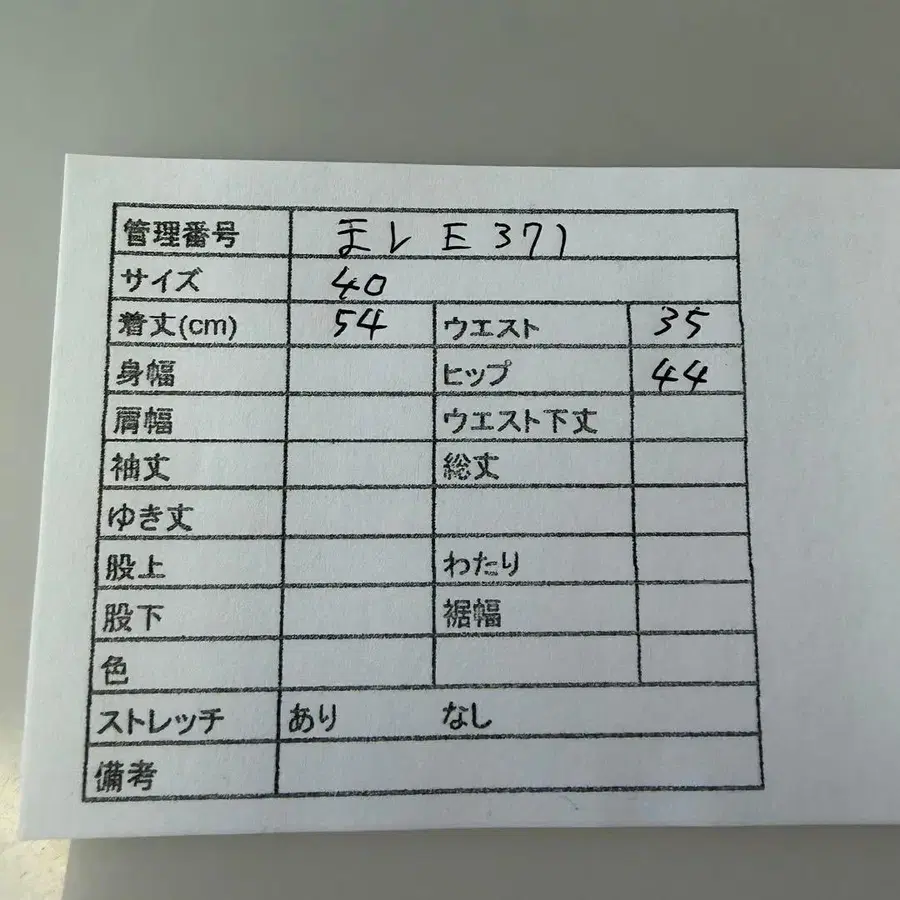 管理番号 まレE371
サイズ 40
着丈(cm) 54 ウエスト 35
身幅 ヒップ 44
肩幅 ウエスト下丈
袖丈 総丈
ゆき丈
股上 わたり
股下 裾幅
色
ストレッチ あり なし
備考